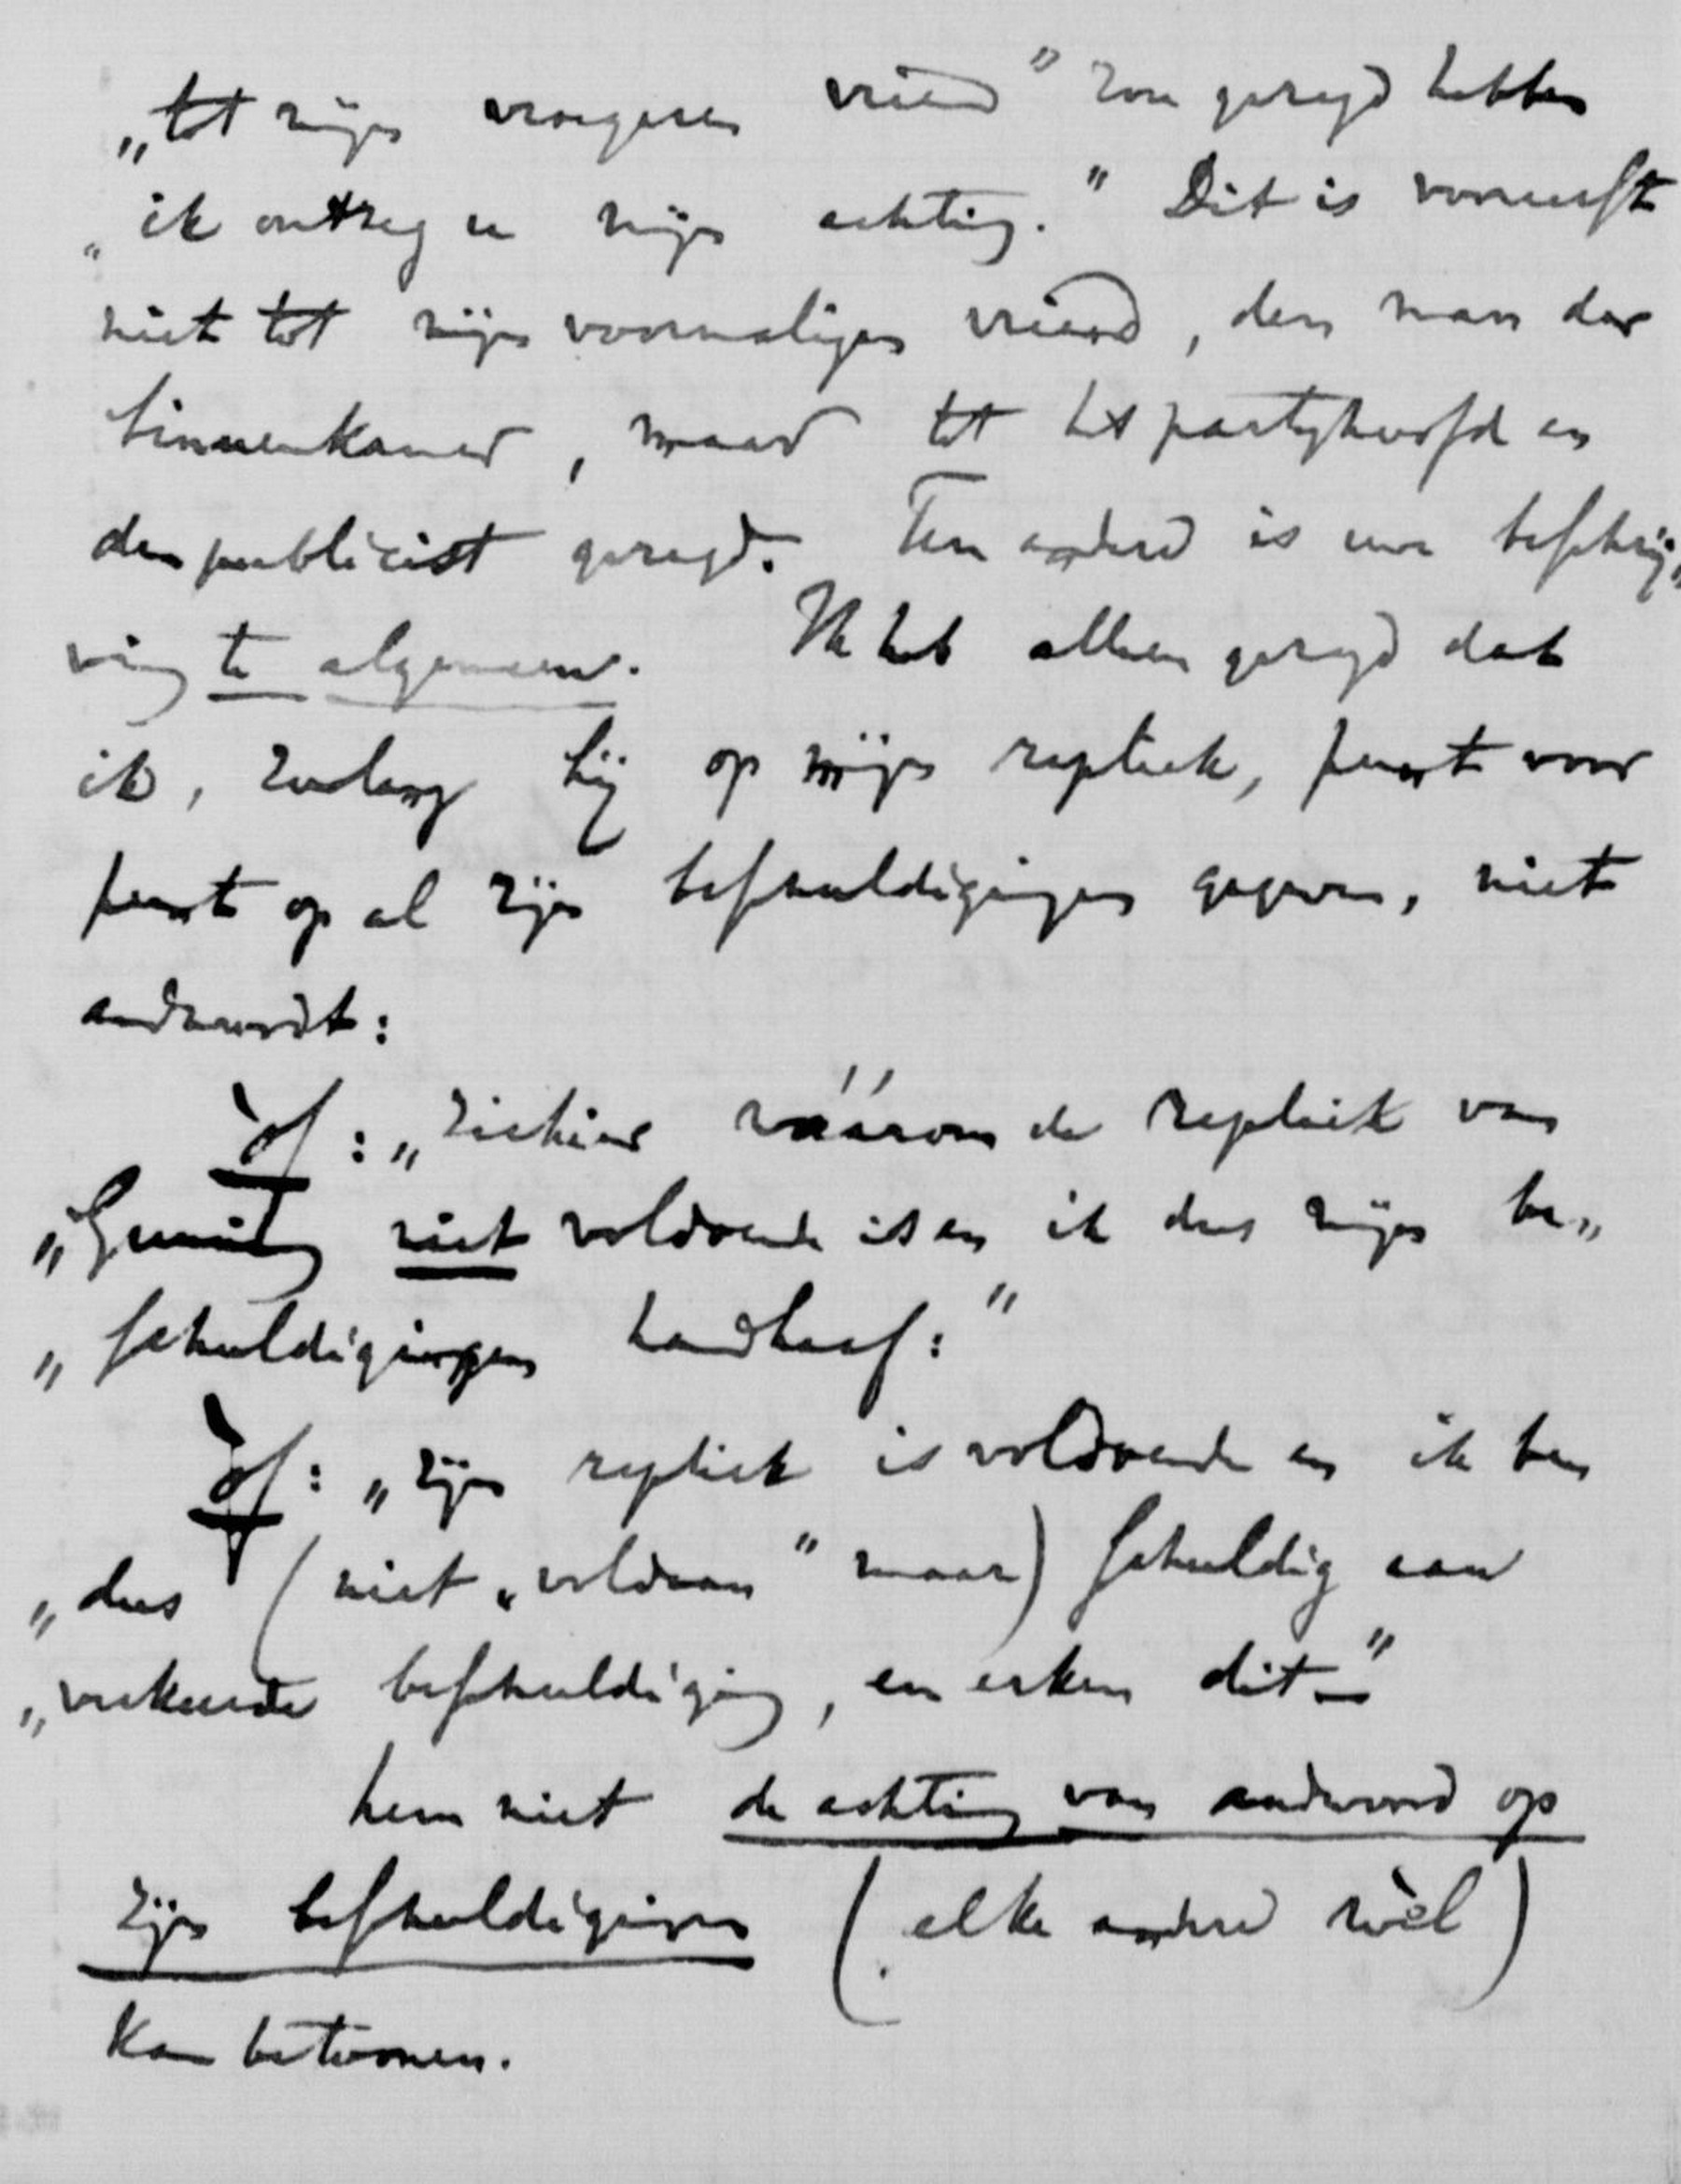 „tot mijn vroegeren vriend" zou gezegd hebben
„ik ontzeg u mijn achting." Dit is vooreerst
niet tot mijn voormaligen vriend, den man der
binnenkamer, maar tot het partyhoofd en
den publicist gezegd. Ten andere is uwe beschrij„
ving te algemeen. Ik heb alleen gezegd dat
ik, zoolang hij op mijn repliek, punt voor
punt op al zijn beschuldigingen gegeven, niet
andwoordt:
òf: „Ziehier wáárom de repliek van
„Gunning niet voldoende is en ik dus mijn be„
„schuldigingen handhaaf:"
òf: „zijn repliek is voldoende en ik ben
„dus (niet „voldaan" maar) schuldig aan
„verkeerde beschuldiging, en erken dit—"
hem niet de achting van andwoord op
zijn beschuldigingen (elke andere wèl)
kan betoonen.